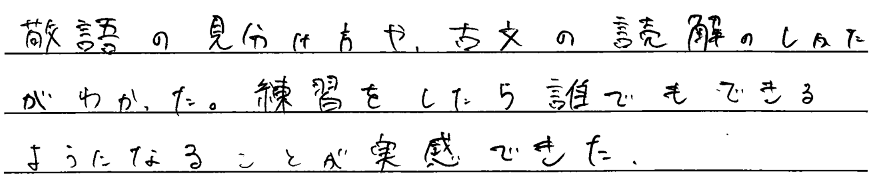 敬語の見分け方や、古文の読解のしかた
がわかった。練習をしたら誰でもできる
ようになることが実感できた。